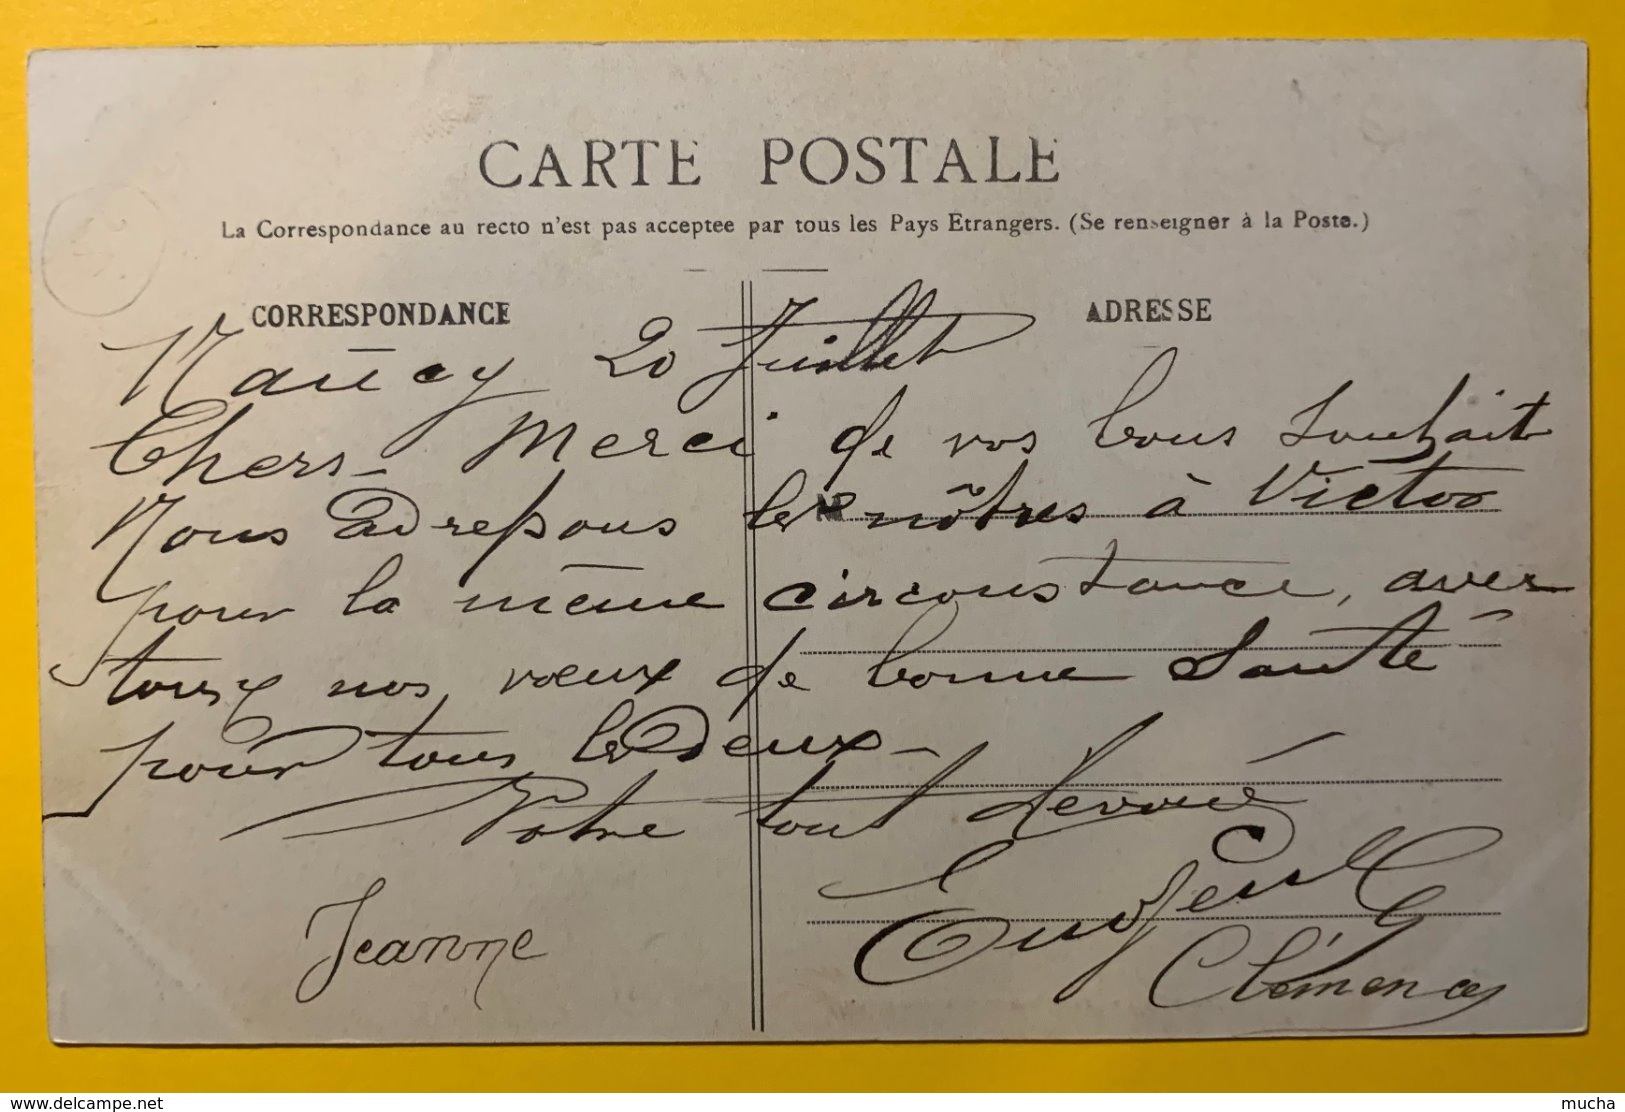 CARTE POSTALE
La Correspondance au recto n'est pas acceptee par tous les Pays Etrangers. (Se renseigner à la Poste.)
CORRESPONDANCE
ADRESSE
Nancy 20 Juillet
Chers - Merci de vos bons souhait
Nous adressons les nôtres à Victor
pour la même circonstance, avec
tous nos vœux de bonne Santé
pour tous les deux -
Votre tout dévoué
Eugène
Jeanne
Clémence
www.delcampe.net
mucha